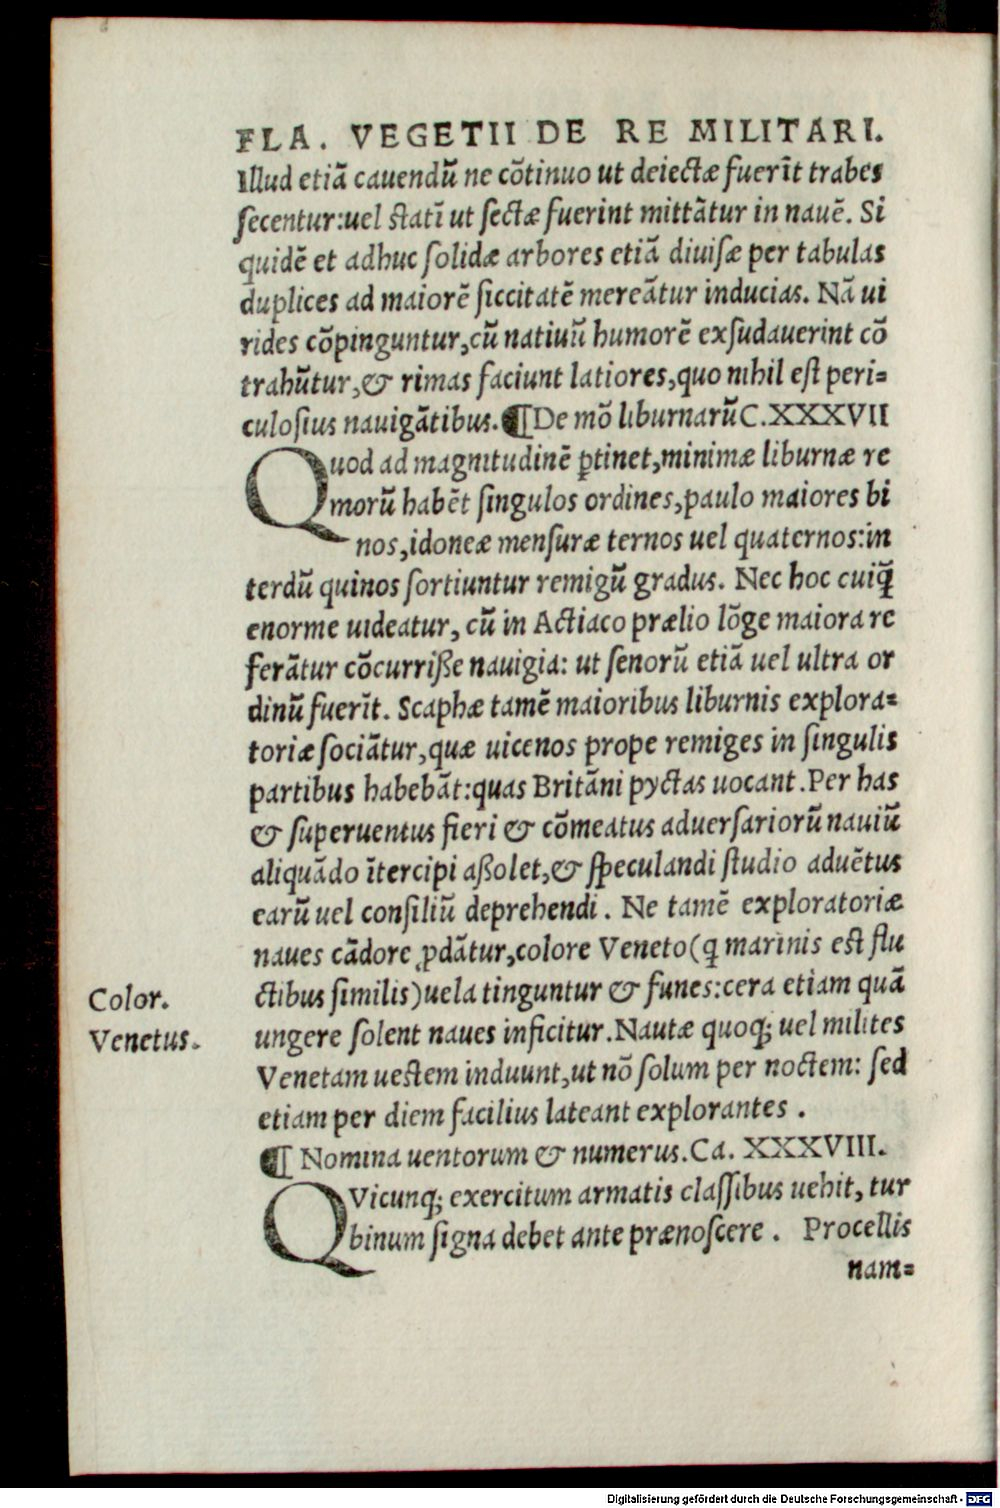 FLA. VEGETII DE RE MILITARI.
Illud etiā cauendū ne cōtinuo ut deiectæ fuerīt trabes
ſecentur:uel ſtatī ut ſectæ fuerint mittātur in nauē. Si
quidē et adhuc ſolidæ arbores etiā diuiſæ per tabulas
duplices ad maiorē ſiccitatē mereātur inducias. Nā ui
rides cōpinguntur,cū natiuū humorē exſudauerint cō
trahūtur,& rimas faciunt latiores,quo nihil eſt peri=
culoſius nauigātibus.¶De mō liburnarū C.XXXVII
Quod ad magnitudinē ꝑtinet,minimæ liburnæ re
morū habēt ſingulos ordines,paulo maiores bi
nos,idoneæ menſuræ ternos uel quaternos:in
terdū quinos ſortiuntur remigū gradus. Nec hoc cuiq̄
enorme uideatur, cū in Actiaco prælio lōge maiora re
ferātur cōcurriße nauigia: ut ſenorū etiā uel ultra or
dinū fuerīt. Scaphæ tamē maioribus liburnis explora=
toriæ ſociātur,quæ uicenos prope remiges in ſingulis
partibus habebāt:quas Britāni pyctas uocant.Per has
& ſuperuentus fieri & cōmeatus aduerſariorū nauiū
aliquādo ītercipi aßolet,& ſpeculandi ſtudio aduētus
earū uel conſiliū deprehendi. Ne tamē exploratoriæ
naues cādore ꝓdātur,colore Veneto(q̨ marinis eſt flu
ctibus ſimilis)uela tinguntur & funes:cera etiam quā
Color.
ungere ſolent naues inficitur.Nautæ quoq; uel milites
Venetus.
Venetam ueſtem induunt,ut nō ſolum per noctem: ſed
etiam per diem facilius lateant explorantes.
¶ Nomina uentorum & numerus.Ca. XXXVIII.
QVicunq; exercitum armatis claſſibus uehit, tur
binum ſigna debet ante prænoſcere. Procellis
nam=
Digitalisierung gefördert durch die Deutsche Forschungsgemeinschaft - DFG